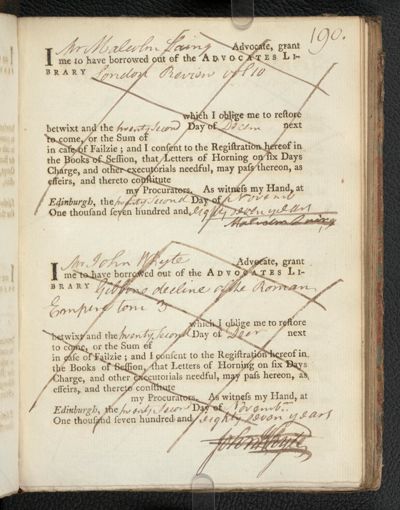 190.
I Mr Malcolm Laing Advocate, grant
me to have borrowed out of the ADVOCATES LI-
BRARY London Review vol 10
which I oblige me to restore
betwixt and the twenty second Day of Decem next
to come, or the Sum of
in case of Failzie; and I consent to the Registration hereof in
the Books of Session, that Letters of Horning on six Days
Charge, and other executorials needful, may pass thereon, as
effeirs, and thereto constitute
my Procurators. As witness my Hand, at
Edinburgh, the twenty second Day of Novemb
One thousand seven hundred and eighty seven years
Malcolm Laing
I Mr John Whyte Advocate, grant
me to have borrowed out of the ADVOCATES LI-
BRARY Gibbons decline of the Roman
Empire tom 3
which I oblige me to restore
betwixt and the twenty second Day of Decr next
to come, or the Sum of
in case of Failzie; and I consent to the Registration hereof in
the Books of Session, that Letters of Horning on six Days
Charge, and other executorials needful, may pass hereon, as
effeirs, and thereto constitute
my Procurators. As witness my Hand, at
Edinburgh, the twenty second Day of Novembr.
One thousand seven hundred and eighty seven years
John Whyte